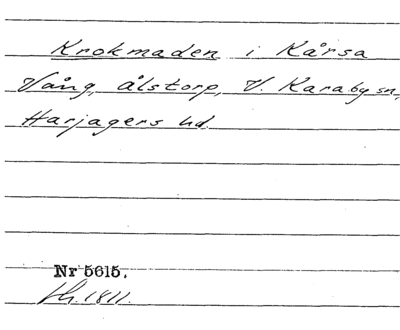 Krokmaden i Kårsa
Vång, Ålstorp, V. Karaby sn,
Harjagers hd.
Nr 5615.
1811.